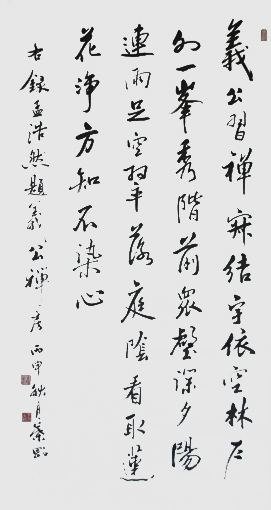 義公習禪寂結宇依空林戶
外一峯秀階前衆壑深夕陽
連雨足空翠落庭陰看取蓮
花淨方知不染心
右錄孟浩然題義公禪房丙申秋月